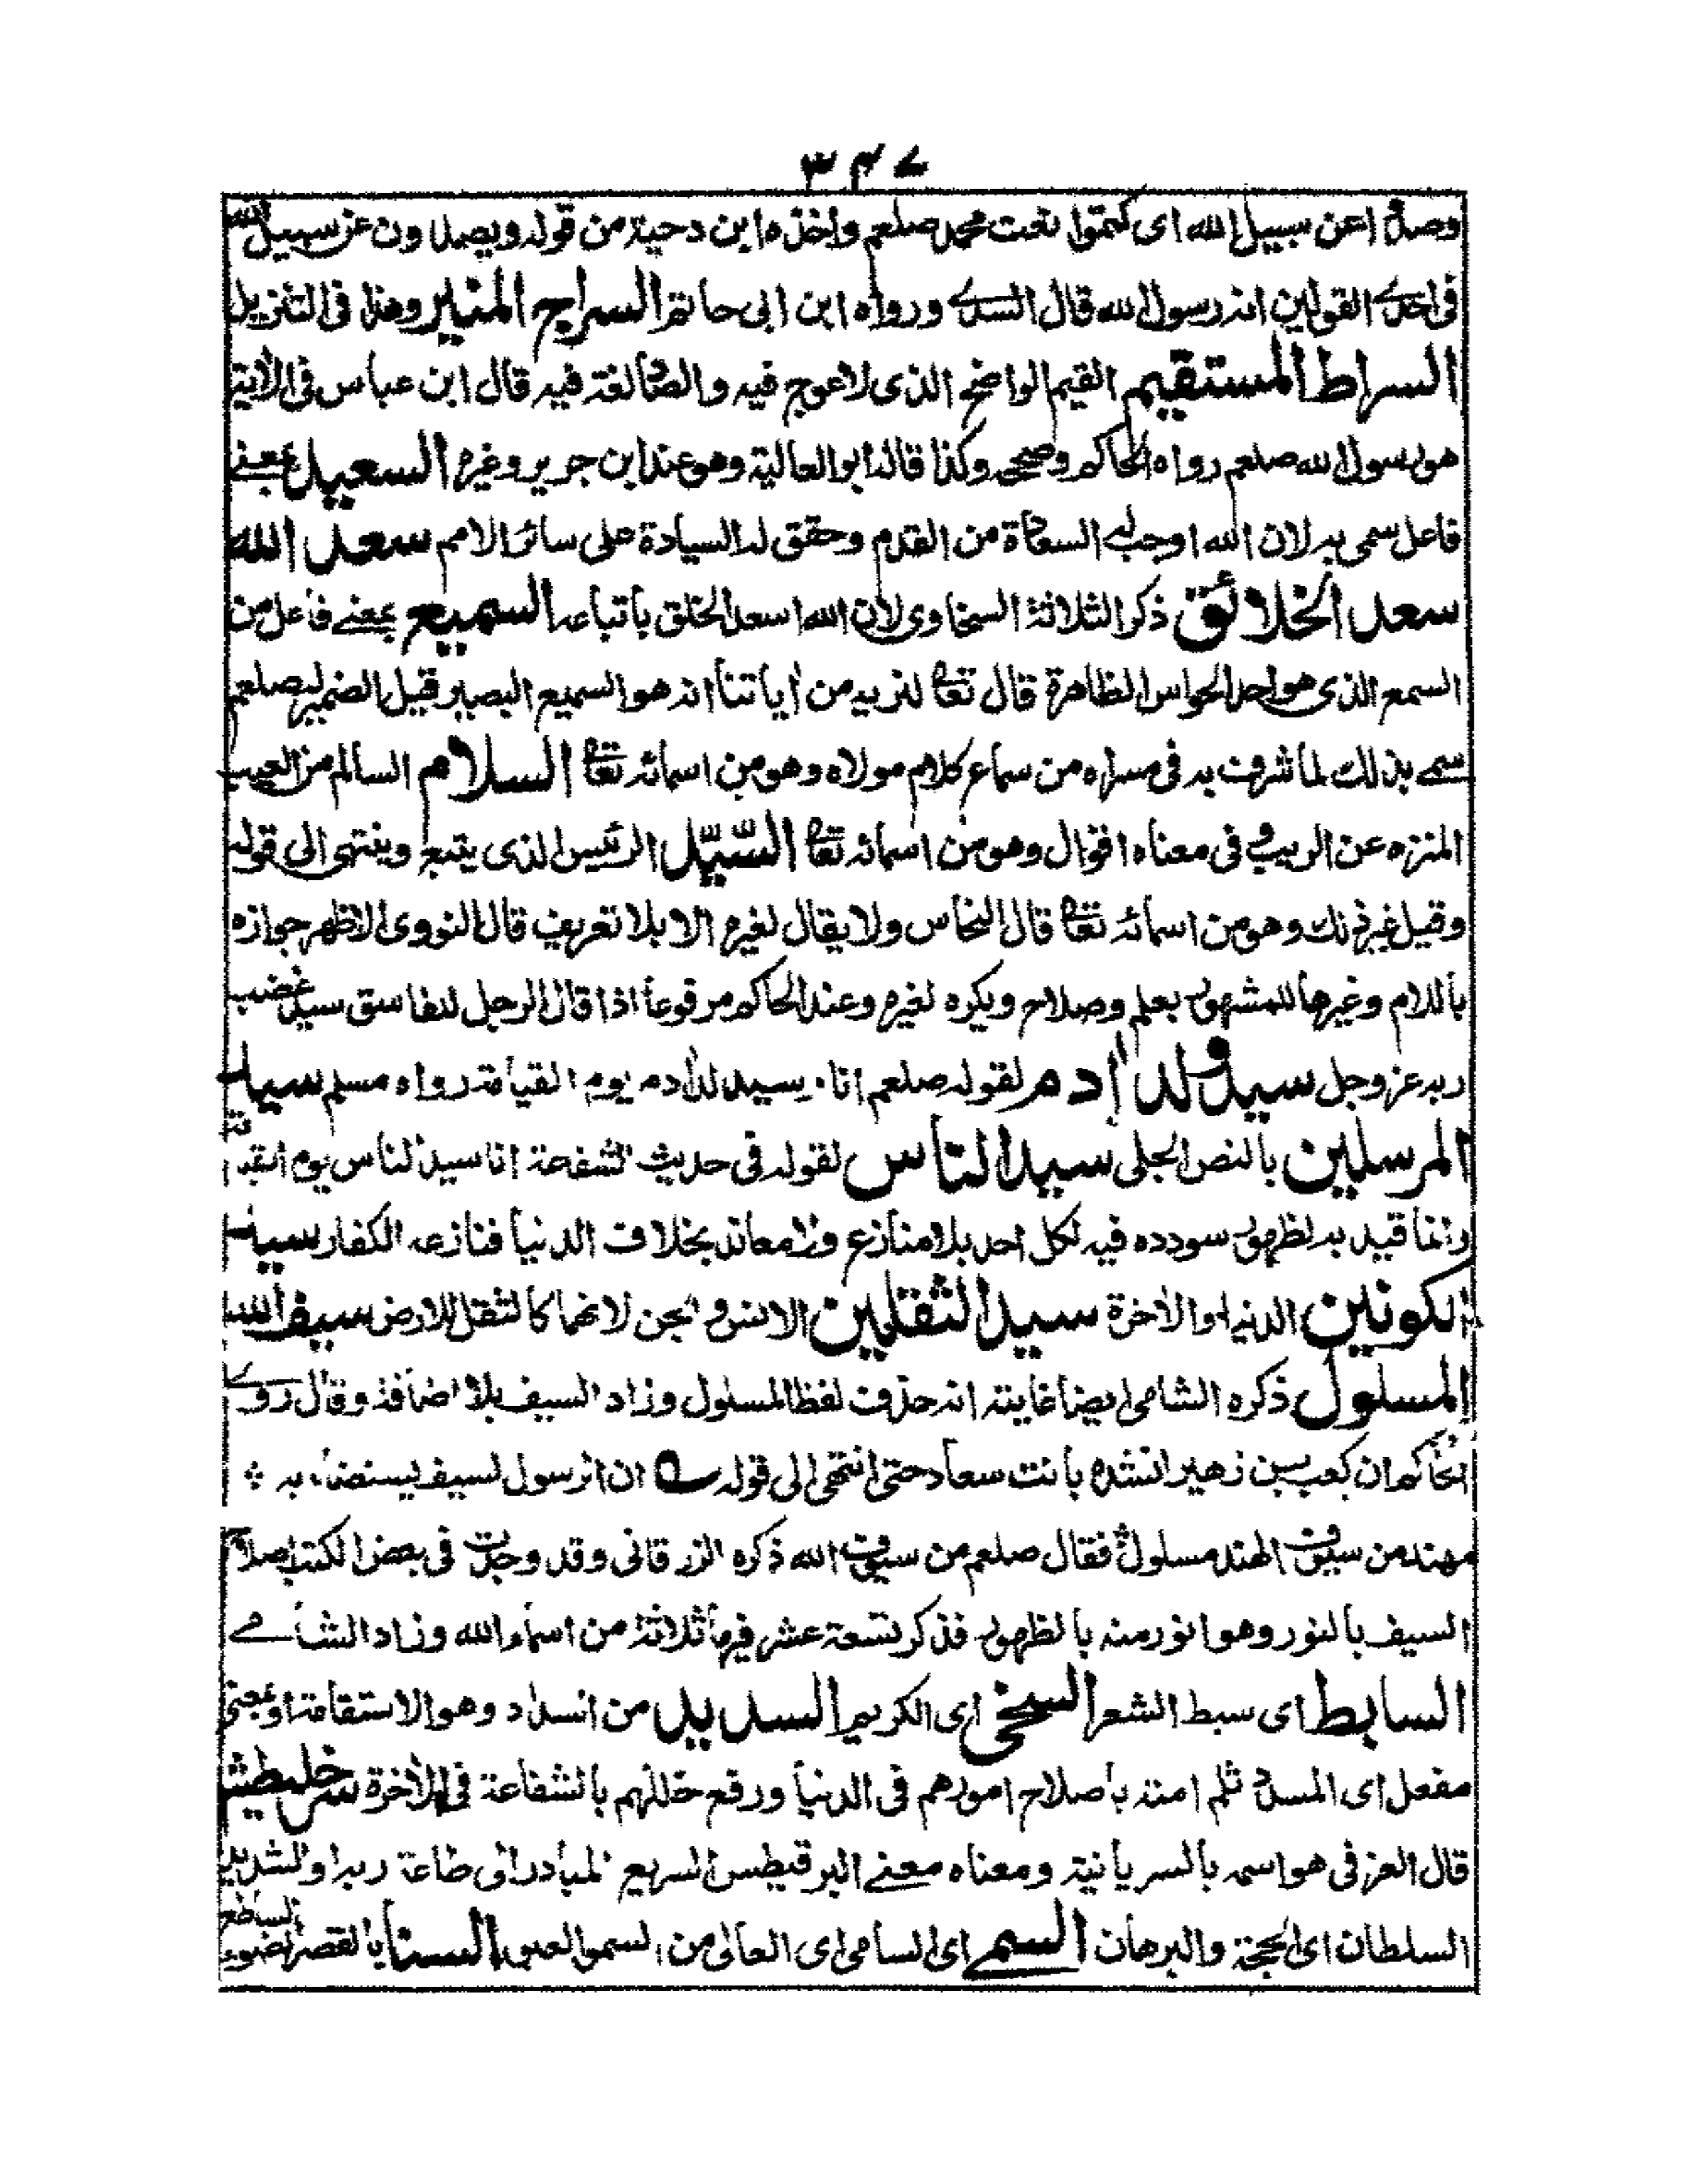 ٣٤٧
وصدوا عن سبيل الله اى كتموا نعت محمد صلعم واخذه ابن دحية من قوله ويصدون عن سبيل الله
فى احدے القولين انه رسول الله قال السدے ورواه ابن ابى حاتم السراج المنير وهذا فى التنزيل
السراط المستقيم القيم الواضح الذى لاعوج فيه والصاد لغة فيه قال ابن عباس فى الأية
هو رسول الله صلعم رواه الحاكم وصححه وكذا قاله ابو العالية وهو عند ابن جرير وغيره السعيد بمعنے
فاعل سمى به لان الله اوجب له السعادة من القدم وحقق له السيادة على سائر الامم سعد الله
سعد الخلائق ذكر الثلاثة السخاوى لان الله اسعد الخلق باتباعه السميع بمعنے فاعل من
السمع الذى هو احد الحواس الظاهرة قال تعالى لنريه من أياتنا انه هو السميع البصير قيل الضمير له صلعم
سمے بذلك لما شرف به فى مسراه من سماع كلام مولاه وهو من اسمائه تعالى السلام السالم من العيب
المنزه عن الريب وفى معناه اقوال وهو من اسمائه تعالى السَّيِّد الرئيس الذى يتبع وينتهى الى قوله
وقيل غير ذلك وهو من اسمائه تعالى قال النحاس ولا يقال لغيره الا بلا تعريف قال النووى الاظهر جوازه
باللام وغيرها للمشهور بعلم وصلاح ويكره لغيره وعند الحاكم مرفوعا اذا قال الرجل للفاسق سيد غضب
ربه عز وجل سيد ولد أدم لقوله صلعم انا سيد ولد أدم يوم القيامة رواه مسلم سيد
المرسلين بالنص الجلى سيد الناس لقوله فى حديث الشفعة انا سيد الناس يوم القيمة
وانما قيد به لظهور سودده فيه لكل احد بلا منازع ولا معاند بخلاف الدنيا فنازعه الكفار سيد
الكونين الدنيا والأخرة سيد الثقلين الانس والجن لانهما كالثقل للارض سيف الله
المسلول ذكره الشامى ايضا غايته انه حذف لفظ المسلول وزاد السيف بلا اضافة وقال روے
الحاكم ان كعب بن زهير انشده بانت سعاد حتى انتهى الى قوله ؎ ان الرسول لسيف يستضاء به ؞
مهند من سيوف الهند مسلول فقال صلعم من سيوف الله ذكره الزرقانى وقد وجدت فى بعض الكتب اصلاح
السيف بالنور وهو انور منه بالظهور فذكر تسعة عشر فيها ثلاثة من اسماء الله وزاد الشامے
السابط اى سبط الشعر السخى اى الكريم السديد من انسداد وهو الاستقامة او بمعنى
مفعل اى المسدد ثلم امته باصلاح امورهم فى الدنيا ورفع خللهم بالشفاعة فى الأخرة
قال العزفى هو اسمه بالسريانية ومعناه معنے البرقيطس السريع المبادر الى طاعة ربه او الشديد
السلطان اى الحجة والبرهان السمے اى السامى اى العالى من السمو العلو السنا بالقصر الضوء الساطع